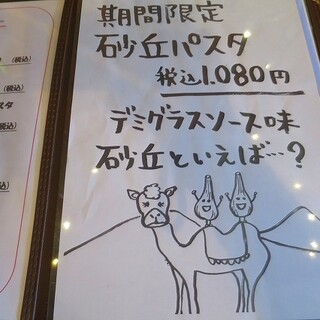 期間限定
砂丘パスタ
税込1.080円
デミグラスソース味
砂丘といえば…?
(税込)
(税込)
スタ
(税込)
税込)